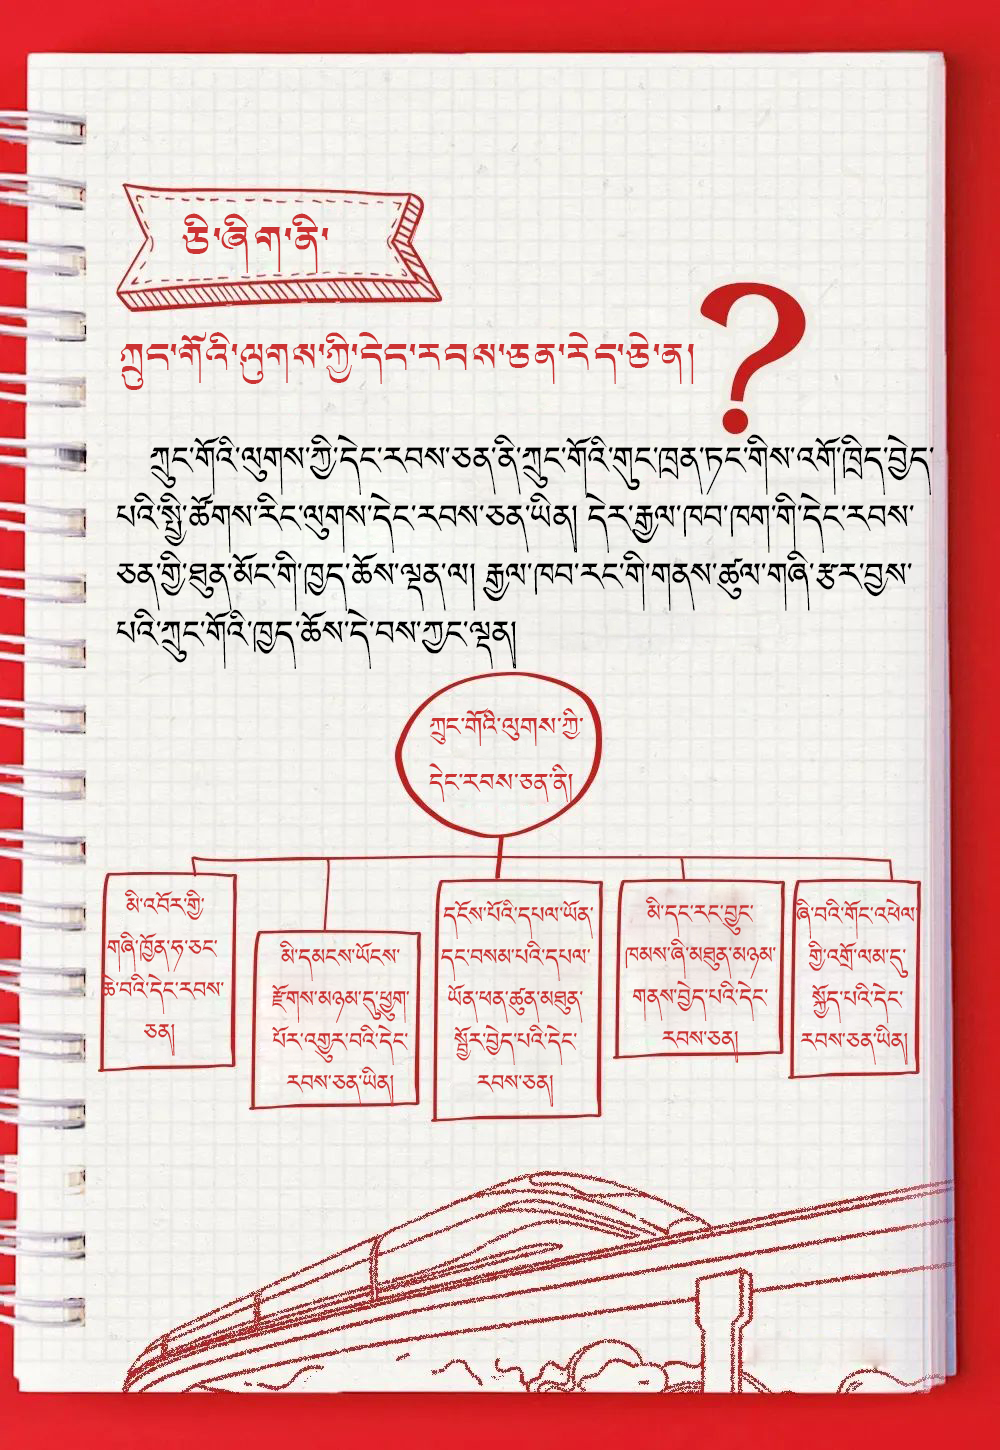 ཅི་ཞིག་ནི་
ཀྲུང་གོའི་ལུགས་ཀྱི་དེང་རབས་ཅན་རེད་ཅེ་ན།
?
ཀྲུང་གོའི་ལུགས་ཀྱི་དེང་རབས་ཅན་ནི་ཀྲུང་གོའི་གུང་ཁྲན་ཏང་གིས་འགོ་ཁྲིད་བྱེད་
པའི་སྤྱི་ཚོགས་རིང་ལུགས་དེང་རབས་ཅན་ཡིན། དེར་རྒྱལ་ཁབ་ཁག་གི་དེང་རབས་
ཅན་གྱི་ཐུན་མོང་གི་ཁྱད་ཆོས་ལྡན་ལ། རྒྱལ་ཁབ་རང་གི་གནས་ཚུལ་གཞི་རྩར་བྱས་
པའི་ཀྲུང་གོའི་ཁྱད་ཆོས་དེ་བས་ཀྱང་ལྡན།
ཀྲུང་གོའི་ལུགས་ཀྱི་
དེང་རབས་ཅན་ནི།
མི་འབོར་གྱི་
གཞི་ཁྱོན་ཧ་ཅང་
ཆེ་བའི་དེང་རབས་
ཅན།
མི་དམངས་ཡོངས་
རྫོགས་མཉམ་དུ་ཕྱུག་
པོར་འགྱུར་བའི་དེང་
རབས་ཅན་ཡིན།
དངོས་པོའི་དཔལ་ཡོན་
དང་བསམ་པའི་དཔལ་
ཡོན་ཕན་ཚུན་མཐུན་
སྦྱོར་བྱེད་པའི་དེང་
རབས་ཅན།
མི་དང་རང་བྱུང་
ཁམས་ཞི་མཐུན་མཉམ་
གནས་བྱེད་པའི་དེང་
རབས་ཅན།
ཞི་བའི་གོང་འཕེལ་
གྱི་འགྲོ་ལམ་དུ་
སྐྱོད་པའི་དེང་
རབས་ཅན་ཡིན།